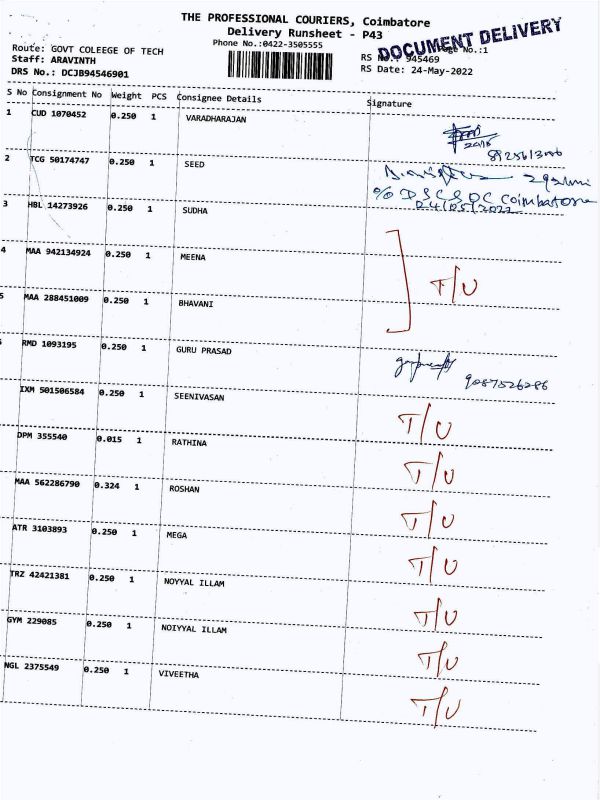 THE PROFESSIONAL COURIERS, Coimbatore
Delivery Runsheet - P43
DOCUMENT DELIVERY
Phone No.:0422-3505555
Page No.:1
Route: GOVT COLEEGE OF TECH
RS No.: 945469
Staff: ARAVINTH
RS Date: 24-May-2022
DRS No.: DCJB94546901
S No Consignment No Weight PCS Consignee Details Signature
1 CUD 1070452 0.250 1 VARADHARAJAN
2 TCG 50174747 0.250 1 SEED
% DSCSOC Coimbatore
24/05/2022
3 HBL 14273926 0.250 1 SUDHA
4 MAA 942134924 0.250 1 MEENA
T/U
5 MAA 288451009 0.250 1 BHAVANI
RMD 1093195 0.250 1 GURU PRASAD
9087526286
IXM 501506584 0.250 1 SEENIVASAN T/U
DPM 355540 0.015 1 RATHINA T/U
MAA 562286790 0.324 1 ROSHAN T/U
ATR 3103893 0.250 1 MEGA T/U
TRZ 42421381 0.250 1 NOYYAL ILLAM T/U
GYM 229085 0.250 1 NOIYYAL ILLAM T/U
NGL 2375549 0.250 1 VIVEETHA T/U